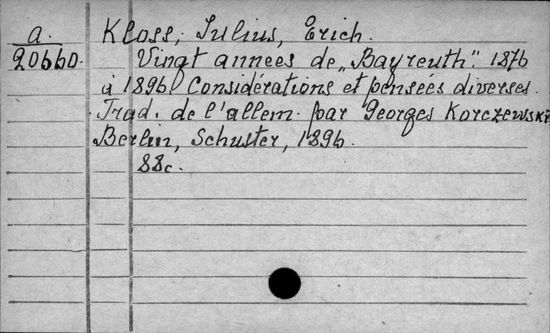 a.
20660.
Kloss, Julius, Erich.
Vingt annees de „Bayreuth". 1876
à 1896. Considérations et pensées diverses.
Trad. de l'allem. par Georges Korczewski
Berlin, Schuster, 1896.
88c.